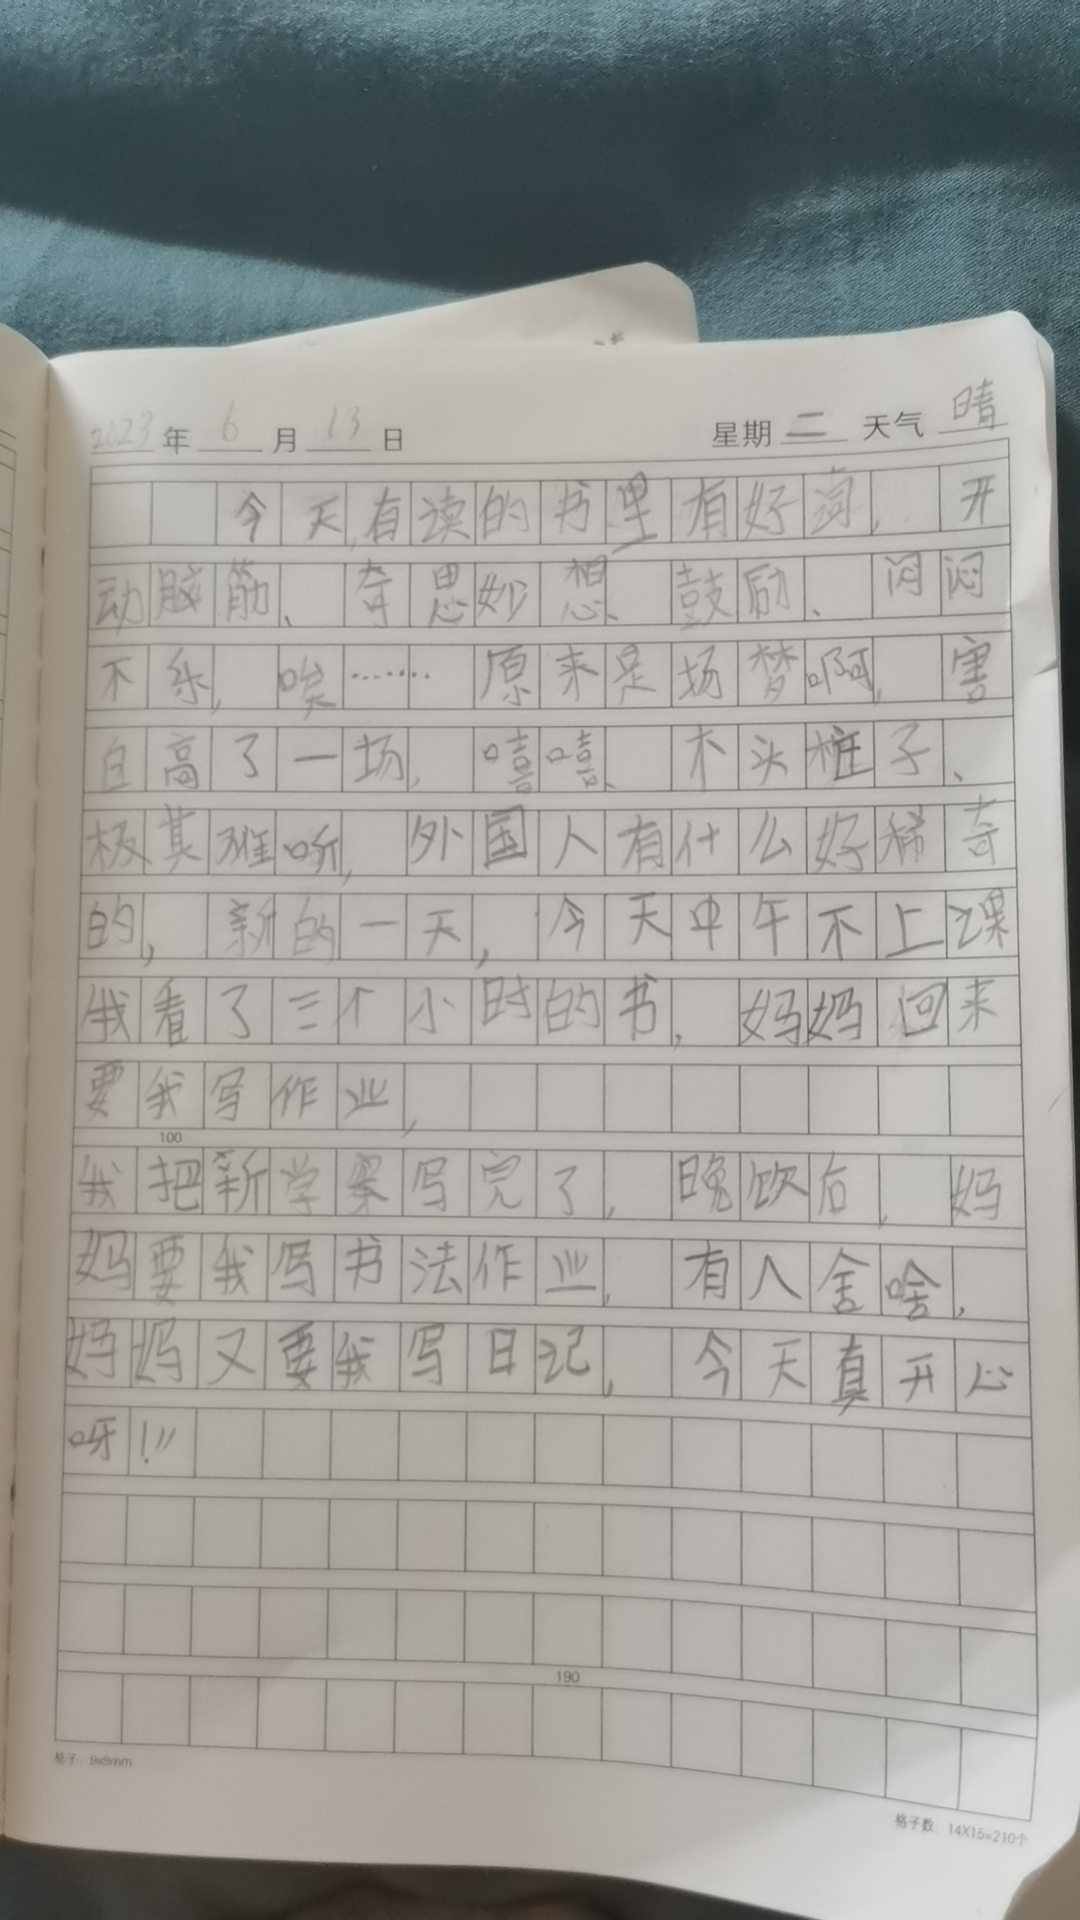 2023年 6 月 13 日 星期 二 天气 晴
今天,有读的书里有好词, 开
动脑筋、 奇思妙想、鼓励、 闷闷
不乐, 唉…… 原来是场梦啊, 害
白高了一场, 嘻嘻、 木头桩子、
极其难听, 外国人有什么好稀奇
的, 新的一天, 今天中午不上课
我看了三个小时的书, 妈妈回来
要我写作业,
100
我把新学案写完了, 晚饮后, 妈
妈要我写书法作业, 有人舍啥,
妈妈又要我写日记, 今天真开心
呀!!!
190
格子: 9x8mm
格子数: 14X15=210个